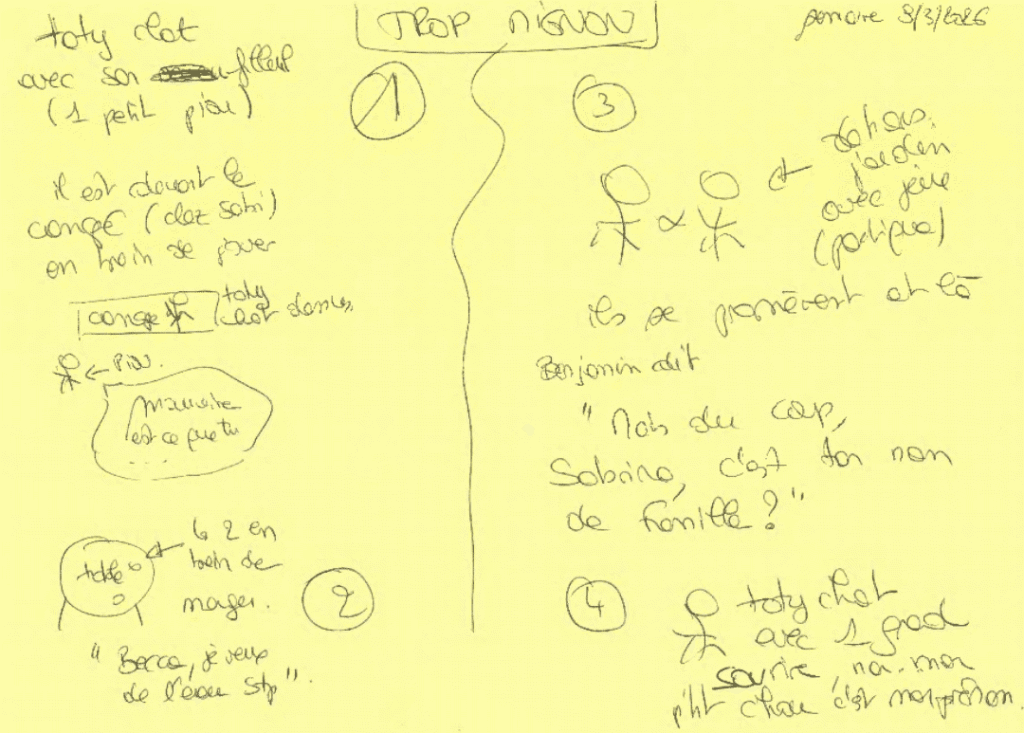 TROP MIGNON
9/3/2026
toty chat
avec son filleul
(1 petit piou)
1
il est devant le
congé (chez Sabri)
en train de jouer
toty
chat dans
← Piou.
est ce que tu
...
table
les 2 en
train de
manger.
2
" Becca, je veux
de l'eau stp".
3
dehors.
jardin
avec jeux
ils se promènent et là
Benjamin dit
" Mais du coup,
Sabrina, c'est ton nom
de famille ? "
4
toty chat
avec 1 grand
sourire, non mon
p'tit chou c'est mon prénom.